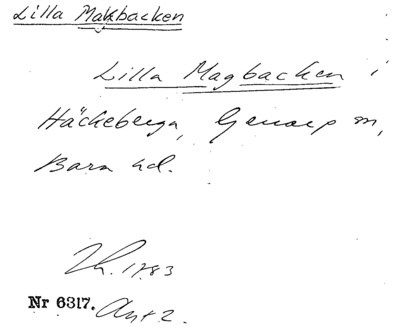 Lilla Makbacken
Lilla Magbacken i
Häckeberga, Genarp sn,
Bara hd.
1783
Nr 6317. Ant 2.